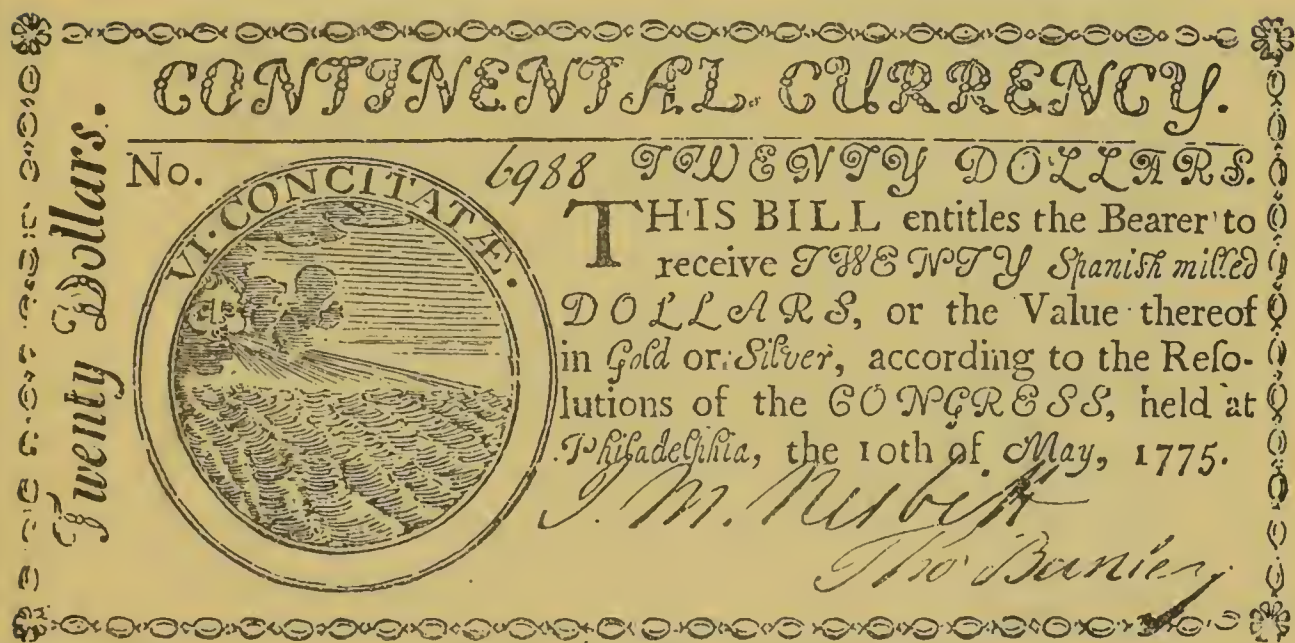 CONTINENTAL CURRENCY.
Twenty Dollars.
No. 6988 TWENTY DOLLARS.
VI·CONCITATÆ.
THIS BILL entitles the Bearer to
receive TWENTY Spanish milled
DOLLARS, or the Value thereof
in Gold or Silver, according to the Reſo-
lutions of the CONGRESS, held at
Philadelphia, the 10th of May, 1775.
J. M. Nesbitt
Tho